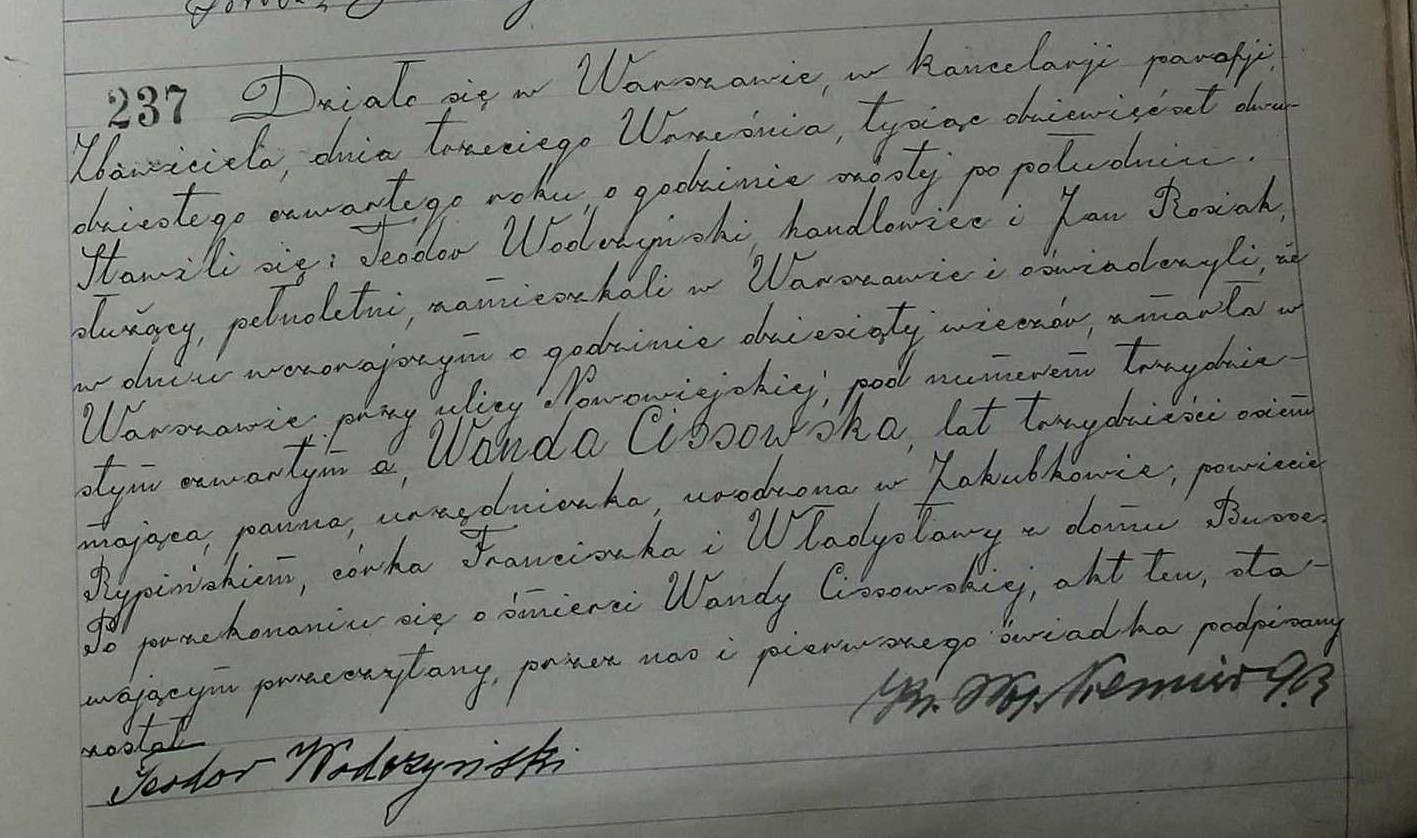 237 Działo się w Warszawie, w kancelarji parafji,
Zbawiciela, dnia trzeciego Września, tysiąc dziewięćset dwu-
dziestego czwartego roku, o godzinie szóstej po południu.
Stawili się: Teodor Wodczyński, handlowiec i Jan Rosiak,
służący, pełnoletni, zamieszkali w Warszawie i oświadczyli, że
w dniu wczorajszym o godzinie dziesiątej wieczór, zmarła w
Warszawie przy ulicy Nowowiejskiej, pod numerem trzydzie-
stym czwartym a, Wanda Cissowska, lat trzydzieści osiem
mająca, panna, urzędniczka, urodzona w Jakubkowie, powiecie
Rypińskiem, córka Franciszka i Władysławy z domu Busse.
Po przekonaniu się o śmierci Wandy Cissowskiej, akt ten, sta-
wającym przeczytany, przez nas i pierwszego świadka podpisany
został
Teodor Wodczyński